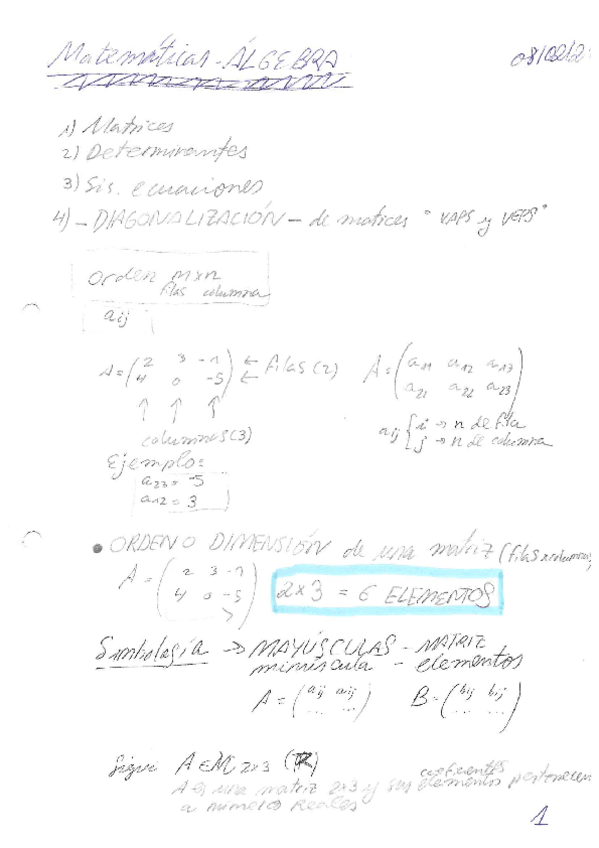 Matemáticas - ÁLGEBRA 08/02/2
1) Matrices
2) Determinantes
3) Sis. ecuaciones
4) - DIAGONALIZACIÓN - de matrices "VAPS y VEPS"
Orden m x n
filas columna
aij
A = (2 3 -1 ← filas (2) A = (a11 a12 a13
4 0 -5) ← a21 a22 a23)
↑ ↑ ↑
columnas (3)
aij { i → n de fila
j → n de columna
Ejemplo:
a23 = -5
a12 = 3
• ORDEN O DIMENSIÓN de una matriz (filas x columnas)
A = (2 3 -1
4 0 -5) 2x3 = 6 ELEMENTOS
Simbología → MAYÚSCULAS - MATRIZ
minúscula - elementos
A = (aij aij B = (bij bij
... ...) ... ...)
A ∈ M 2x3 (R)
coeficientes
A es una matriz 2x3 y sus elementos pertenecen
a números Reales
1